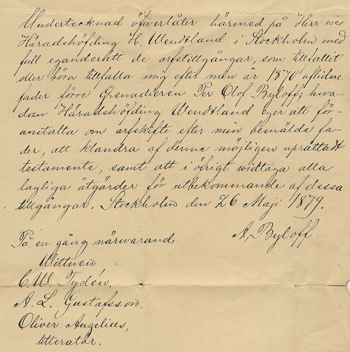 Undertecknad öfverlåter härmed på Herr vice
Häradshöfding H. Wendtland i Stockholm med
full eganderätt de arfstillgångar, som tillfallit
eller böra tillfalla mig efter min år 1870 aflidne
fader förre Grenadieren Per Olof Byloff; hva-
dan Häradshöfding Wendtland eger att för-
anstalta om arfskifte efter min bemälde fa-
der, att klandra af denne möjligen upprättadt
testamente, samt att i öfrigt vidtaga alla
lagliga åtgärder för utbekommande af dessa
tillgångar. Stockholm den 26 Maj 1879.
A, Byloff
På en gång närvarande
Wittnen
C. W. Tydén,
A. L. Gustafsson.
Oliver Anzelius,
Litteratör.